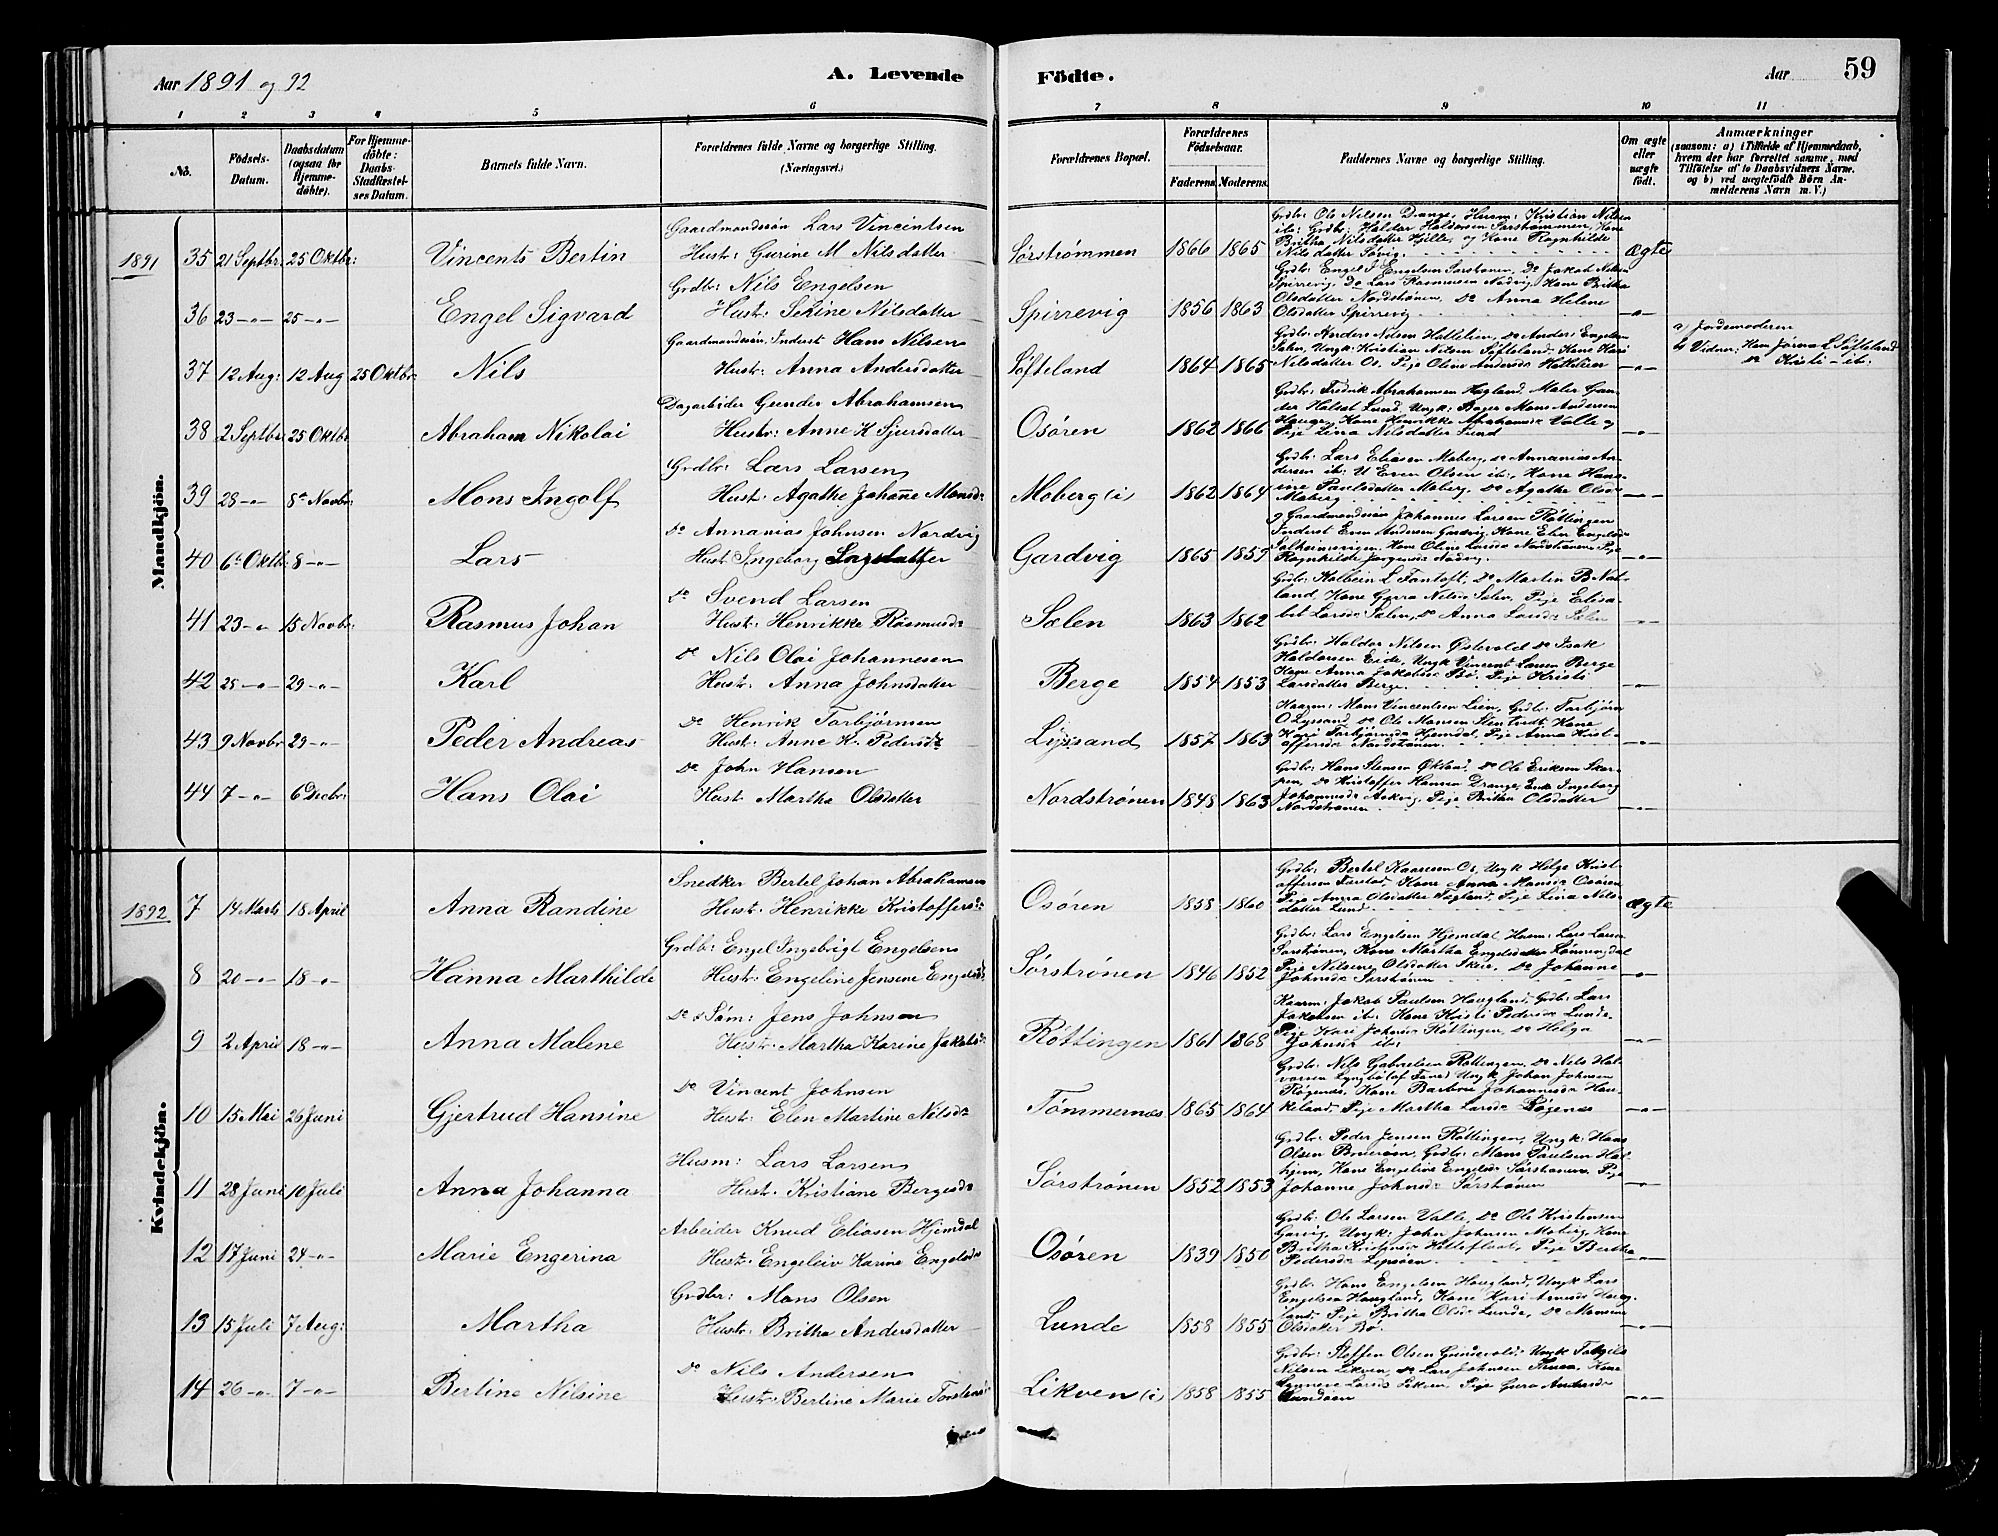 Aar 1891 og 92
A. Levende Födte.
Aar
59
1 2 3 4 5 6 7 8 9 10 11
No.
Födsels-Datum.
Daabsdatum (ogsaa for Hjemme-döbte).
For Hjemme-döbte: Daabs-Stadfæstel-ses Datum.
Barnets fulde Navn.
Forældrenes fulde Navne og borgerlige Stilling. (Næringsvei.)
Forældrenes Bopæl.
Forældrenes Födselsaar.
Faderens. Moderens.
Faddernes Navne og borgerlige Stilling.
Om ægte eller uægte födt.
Anmærkninger
(saasom: a) i Tilfælde af Hjemmedaab, hvem der har forrettet samme, med Tilföielse af to Daabsvidners Navne, og b) ved uægtefödte Börn An-melderens Navn m. V.)
Mandkjön.
1891 35 21 Septbr: 25 Oktbr: Vincents Bertin
Gaardmandssön Lars Vincentsen
Hustr: Gurine M Nilsdatter
Sørstrømmen 1866 1865
Grdbr: Ole Nilsen Drange, Husm: Kristian Nilsen
ib: Grdbr: Haldor Haldorsen Sørstrømmen, Kone
Britha Nilsdatter Hjelle, og Kone Ragnhilde
Nilsdatter Søvig
ægte
36 23 -"- 25 -"- Engel Sigvard
Grdbr: Nils Engelsen
Hustr: Serine Nilsdatter
Spirrevig 1856 1863
Olsdatter Nordstrønen, Do Anna Helene
Olsdatter Spirrevig
-"-
37 12 Aug: 12 Aug 25 Oktbr: Nils
Gaardmandssön, Inderst Hans Nilsen
Hustr: Anna Andersdatter
Søfteland 1864 1865
Nilsdatter Os, Pige Oline Andersdr Hatletien
-"-
a) Jordemoderen
b) Vidner: Hans Jørna L Søfteland
Do Kristi - ib:
38 2 Septbr 25 Oktbr Abraham Nikolai
Dagarbeider Gunder Abrahamsen
Hustr: Anne K Sjursdatter
Osøren 1862 1866
Grdbr: Fredrik Abrahamsen Hagland, Maler Gun-
der Halset Lund, Ungk: Bager Mons Andersen
Hauge, Kone Henrikke Abrahamsdr Valle og
Pige Lina Nilsdatter Lund
-"-
39 28 -"- 8de Novbr: Mons Ingolf
Grdbr: Lars Larsen
Hustr: Agathe Johanne Monsdr
Moberg (i) 1862 1864
Grdbr: Lars Eliasen Moberg, Do Annanias An-
dersen ib: U Even Olsen ib:, Kone Hans-
ine Paulsdatter Moberg, Do Agathe Olsdr
Moberg
-"-
40 6te Oktbr: 8 -"- Lars
Do Annanias Johnsen Nordvig
Hustr: Ingeborg Larsdatter
Gardvig 1865 1859
Gaardmandssön Johannes Larsen Røttingen
Ragnhilde Jørgensdr
-"-
41 23 -"- 15 Novbr: Rasmus Johan
Do Svend Larsen
Hustr: Henrikke Rasmusdr
Sælen 1863 1862
Grdbr: Kolbein L Fantoft, Do Martin B Nat-
land, Kone Guro Nilsdr Sælen, Pige Elisa-
bet Larsdr Sælen, Do Anna Larsdr Sælen
-"-
42 25 -"- 29 -"- Karl
Do Nils Olai Johannesen
Hustr: Anna Johnsdatter
Berge 1854 1853
Grdbr: Haldor Nilsen Østevold Do Isak
Haldorsen Eide, Ungk Vincent Larsen Berge
Kone Anna Jakobsdr Bø, Pige Kristi
Larsdatter Berge
-"-
43 9 Novbr 29 -"- Peder Andreas
Do Henrik Torbjørnsen
Hustr: Anne K. Pedersdr
Lysand 1857 1863
Kaarm: Mons Vincentsen Lien, Grdbr: Torbjørn
O Lyssand, Do Ole Monsen Stentvedt, Kone
Kari Torbjørnsdr Hjemdal, Pige Anna Krist-
offersdr Nordstrønen
-"-
44 7 -"- 6 Decbr: Hans Olai
Do John Hansen
Hustr Martha Olsdatter
Nordstrønen 1848 1863
Grdbr: Hans Stensen Økland, Do Ole Eriksen Skor-
pen, Do Kristoffer Hansen Drange, Enke Ingeborg
Johannesdr Askvig, Pige Britha Olsdatter
Nordstrønen
-"-
Kvindekjön.
1892 7 14 Marts 18 April Anna Randine
Snedker Bertel Johan Abrahamsen
Hustr: Henrikke Kristoffersdr
Osøren 1858 1860
Grdbr: Bertel Kaaresen Os, Ungk Helge Krist-
offersen Farstad, Kone Anna Monsdr Osøren,
Pige Anna Olsdatter Hagland, Pige Lina Nils-
datter Lund
ægte
8 20 -"- 18 -"- Hanna Marthilde
Grdbr: Engel Ingebrigt Engelsen
Hustr: Engeline Jensine Engelsdr
Sørstrønen 1846 1852
Grdbr: Lars Engelsen Hjemdal, Husm: Lars Larsen
Sørstrønen, Kone Martha Engelsdatter
Pige Nilsine Olsdatter Skeie, Do Johanne
Johnsdr Sørstrønen
-"-
9 2 April 18 -"- Anna Malene
Do & Søm: Jens Johnsen
Hustr: Martha Karine Jakobsdr
Røttingen 1861 1868
Kaarm: Jakob Paulsen Haugland, Grdbr: Lars
Jakobsen ib: Kone Kristi Pedersdr Lunde,
Pige Kari Johnsdr Røttingen, Do Helga
Johnsdr ib:
-"-
10 15 Mai 26 Juni Gjertrud Hansine
Do Vincent Johnsen
Hustr: Elen Martine Nilsdr
Tømmernæs 1865 1864
Grdbr: Nils Gabrielsen Røttingen, Do Nils Hal-
vorsen Lyngbø af Fane, Ungk Johan Johnsen
Røgenæs, Kone Barbro Johannesdr Hau-
keland, Pige Martha Larsdr Røgenæs
-"-
11 28 Juni 10 Juli Anna Johanna
Husm: Lars Larsen
Hustr: Kristiane Bergesdr
Sørstrønen 1852 1853
Grdbr: Peder Jensen Røttingen, Ungk: Hans
Olsen Bruarøen, Grdbr: Mons Paulsen Hal-
hjem, Kone Engeline Engelsdr Sørstrønen, Pige
Johanne Johnsdr Sørstrønen
-"-
12 17 Juni 24 -"- Marie Engerina
Arbeider Knud Eliasen Hjemdal
Hustr: Engeleiv Karine Engelsdr
Osøren 1839 1850
Grdbr: Ole Larsen Valle, Do Ole Kristensen
Garvig, Ungk: John Johnsen Moberg, Kone
Britha Kristensdr Hetleflaat, Pige Bertha
Pedersdr Lepsøen
-"-
13 15 Juli 7 Aug: Martha
Grdbr: Mons Olsen
Hustr: Britha Andersdatter
Lunde 1858 1855
Grdbr: Hans Engelsen Haugland, Ungk Lars
Engelsen Haugland, Kone Kari Arnesdr Haug-
land, Pige Britha Olsdr Lunde, Do Monsine
Olsdatter Bø
-"-
14 26 -"- 7 -"- Bertine Nilsine
Do Nils Andersen
Hustr: Bertine Marie Torstensdr
Likven (i) 1858 1855
Grdbr: Steffen Olsen Grindevold, Ungk Torgils
Nilsen Likven, Do Lars Johnsen Tuen, Kone
Larsdr Likven, Pige Guro Andersdr
-"-